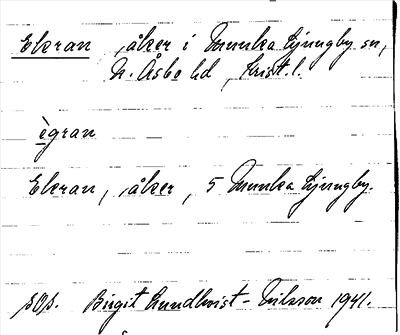 Ekran , åker i Munka Ljungby sn,
N. Åsbo hd , Krist. l.
ègran
Ekran, , åker , 5 Munka Ljungby.
Birgit Lundkvist - Nilsson 1941.